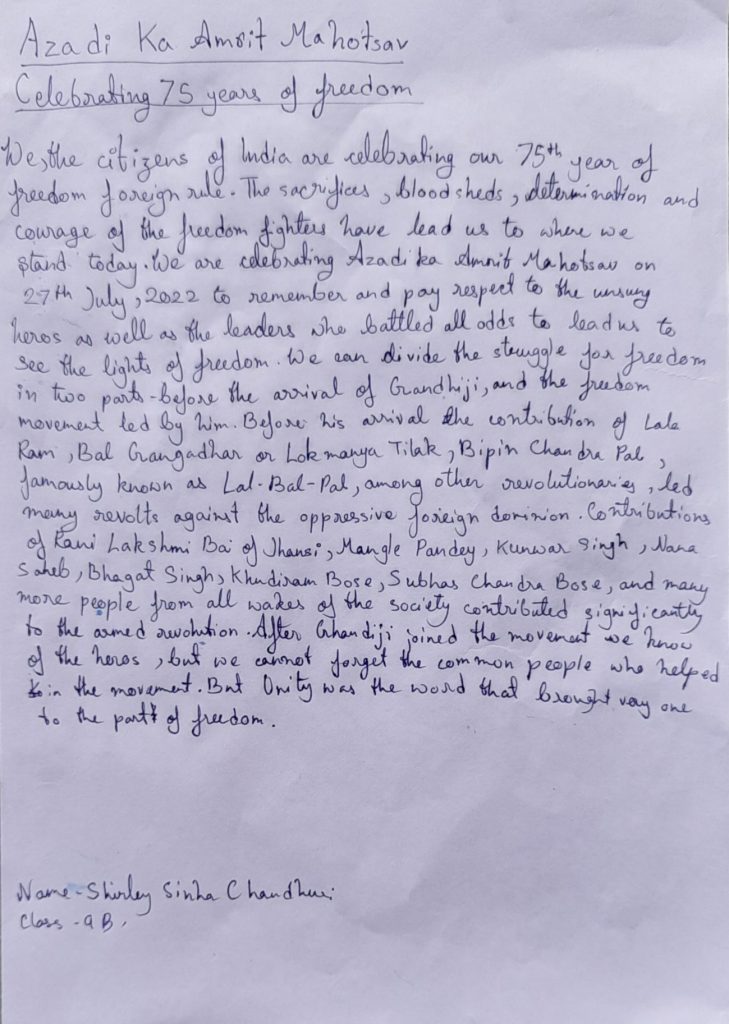 Azadi Ka Amrit Mahotsav
Celebrating 75 years of freedom
We, the citizens of India are celebrating our 75th year of
freedom foreign rule. The sacrifices, bloodsheds, determination and
courage of the freedom fighters have lead us to where we
stand today. We are celebrating Azadi ka Amrit Mahotsav on
27th July, 2022 to remember and pay respect to the unsung
heros as well as the leaders who battled all odds to lead us to
see the lights of freedom. We can divide the struggle for freedom
in two parts - before the arrival of Gandhiji, and the freedom
movement led by him. Before his arrival the contribution of Lala
Ram, Bal Gangadhar or Lokmanya Tilak, Bipin Chandra Pal,
famously known as Lal-Bal-Pal, among other revolutionaries, led
many revolts against the oppressive foreign dominion. Contributions
of Rani Lakshmi Bai of Jhansi, Mangle Pandey, Kunwar Singh, Nana
Saheb, Bhagat Singh, Khudiram Bose, Subhas Chandra Bose, and many
more people from all wakes of the society contributed significantly
to the armed revolution. After Ghandiji joined the movement we know
of the heros, but we cannot forget the common people who helped
in the movement. But Unity was the word that brought very one
to the part of freedom.
Name - Shirley Sinha Chaudhuri
Class - 9 B.